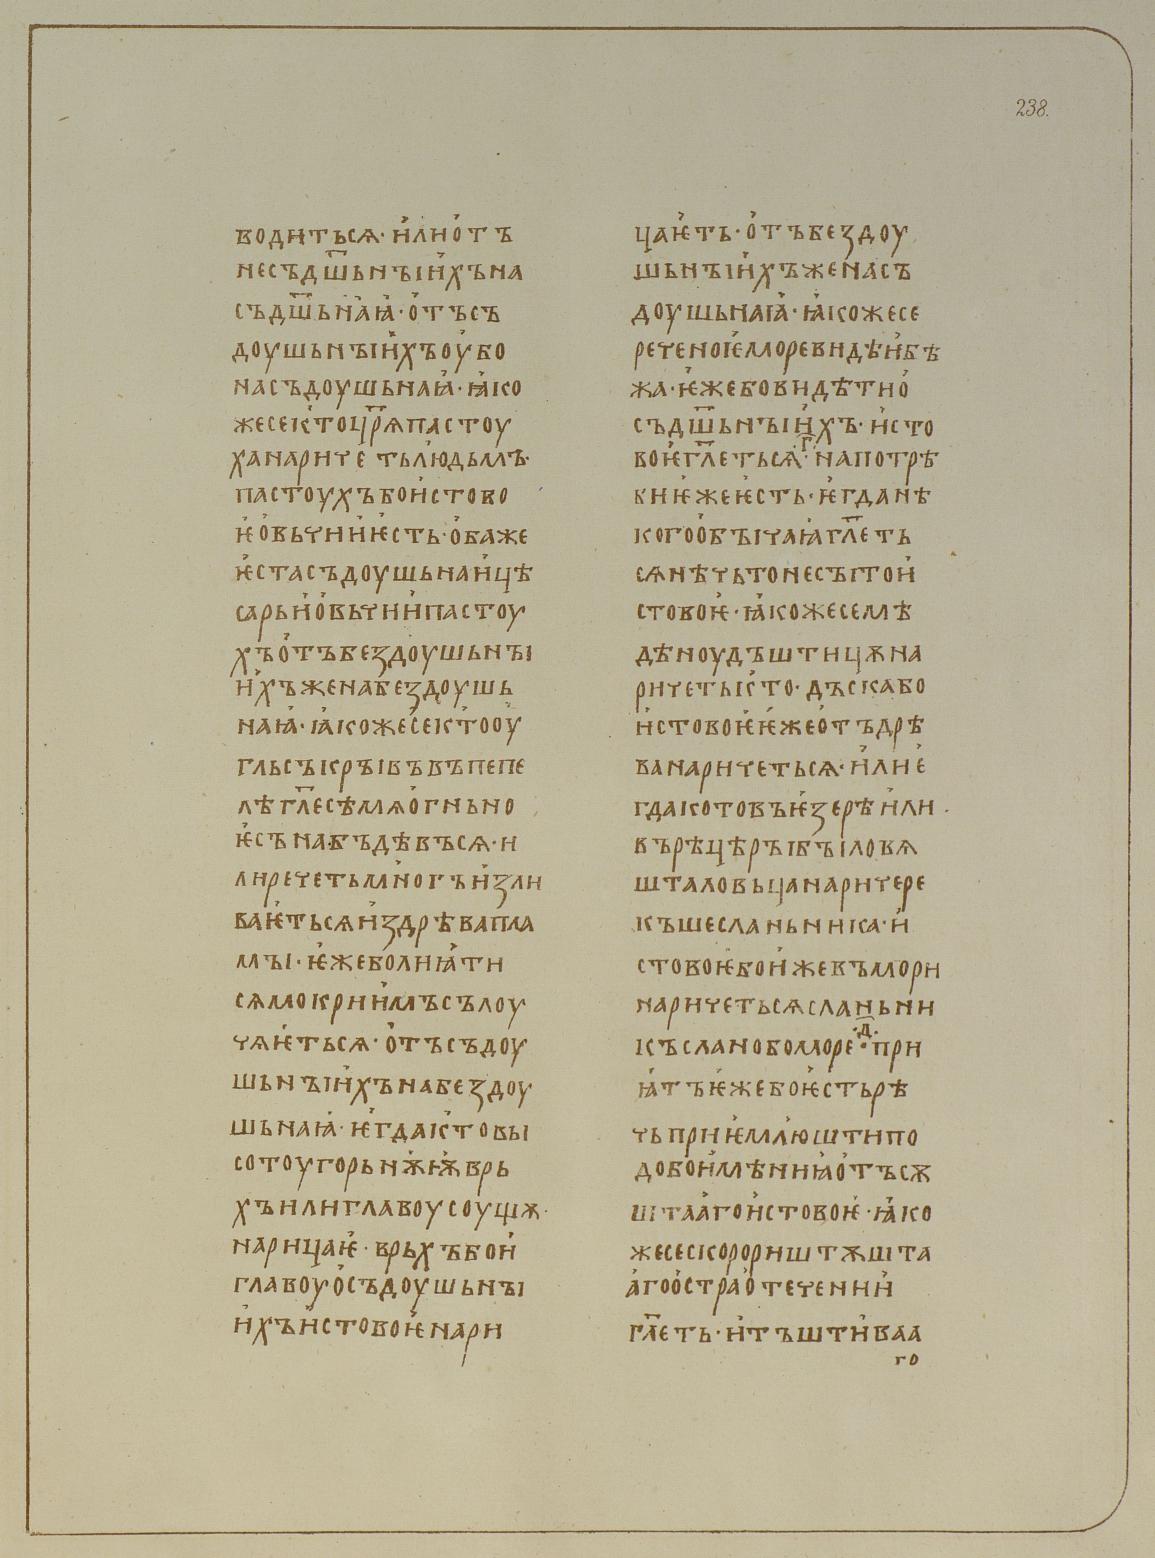 238.
водитьсѧ· и҆лио҆тъ
несъдш҃ьнꙑи҆хъна
съдш҃ьнаꙗ҆·о҆тъсъ
доушьнꙑи҆хъоу҆бо
насъдоушьнаꙗ҆·ꙗ҆ко
жесекⸯтоцр҃ѧпастоу
ханариче҆тьлюдьмъ·
пастоухъбои҆стово
ѥ҆о҆вьчии҆ѥ҆сть·о҆баже
ѥ҆стасъдоушьнаи҆цѣ
сарьи҆о҆вьчии҆пастоу
хъо҆тъбездоушьнꙑ
и҆хъженабездоушь
наꙗ҆·ꙗ҆кожесекⸯтооу҆
гльсъкрꙑвъвъпепе
лѣгл҃есѣмѧо҆гньно
ѥ҆съна·бъдѣвъсѧ·и
лиречетьмⸯногъи҆зли
ваѥ҆тьсѧи҆здрѣвапла
мꙑ·ѥ҆жеболиꙗ҆ти
сѧмокрии҆мъсълоу
чѧѥ҆тьсѧ·о҆тъсъдоу
шьнꙑи҆хънабездоу
шьнаꙗ҆·ѥ҆гдакⸯтовы
сотоугорьнѫ҆ѭ҆врь
хъилиглавоусоущѫ·
нарицаѥ҆·врьхъбои҆
главоуо҆съдоушьнꙑ
и҆хъи҆стовоѥ҆нари
цаѥ҆ть·о҆тъбездоу
шьнꙑи҆хъженасъ
доушьнаꙗ҆·ꙗ҆кожесе
реченоѥ҆моревидѣи҆бѣ
жа·ѥ҆жебовидѣтио҆
съдш҃ьнꙑи҆хъ·исто
воѥ҆гл҃етьсѧ·г҃·напотрѣ
киѥжеѥсть·ѥ҆гданѣ
когоо҆бꙑчаꙗ҆гл҃еть
сѧнѣчьтонесꙑтои҆
стовоѥ·ꙗ҆кожесемѣ
дѣноудъштицѫна
ричетькⸯто·дъскабо
и҆стовоѥ҆ѥ҆жео҆тъдрѣ
ванаричетьсѧ·и҆лие҆
гдакотовъѥ҆зерѣи҆ли
върѣцѣрꙑбꙑловѧ
шталовьцанаричере
къшесланьника·и҆
стовоѥбои҆жевъмори
наричетьсѧсланьни
къслановоморе·д҃·при
ꙗ҆тъѥ҆жебоѥ҆стьрѣ
чьприѥ҆млюштипо
добои҆мѣниꙗо҆тъсѫ
штаа҆гои҆стовоѥ҆·ꙗ҆ко
жесескорориштѫшта
а҆гоо҆страо҆течении҆
гл҃еть·и҆тъшти҆ваа
го